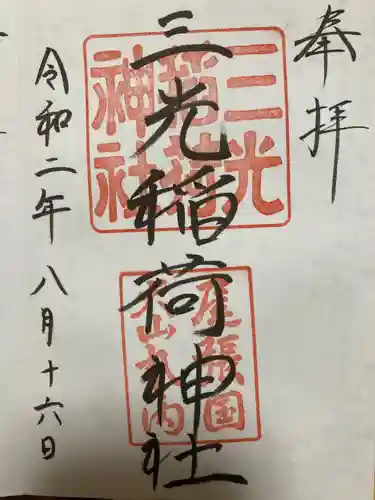 奉拝
三光稲荷神社
令和二年 八月十六日
三光
稲荷
神社
尾張国
犬山丸の内